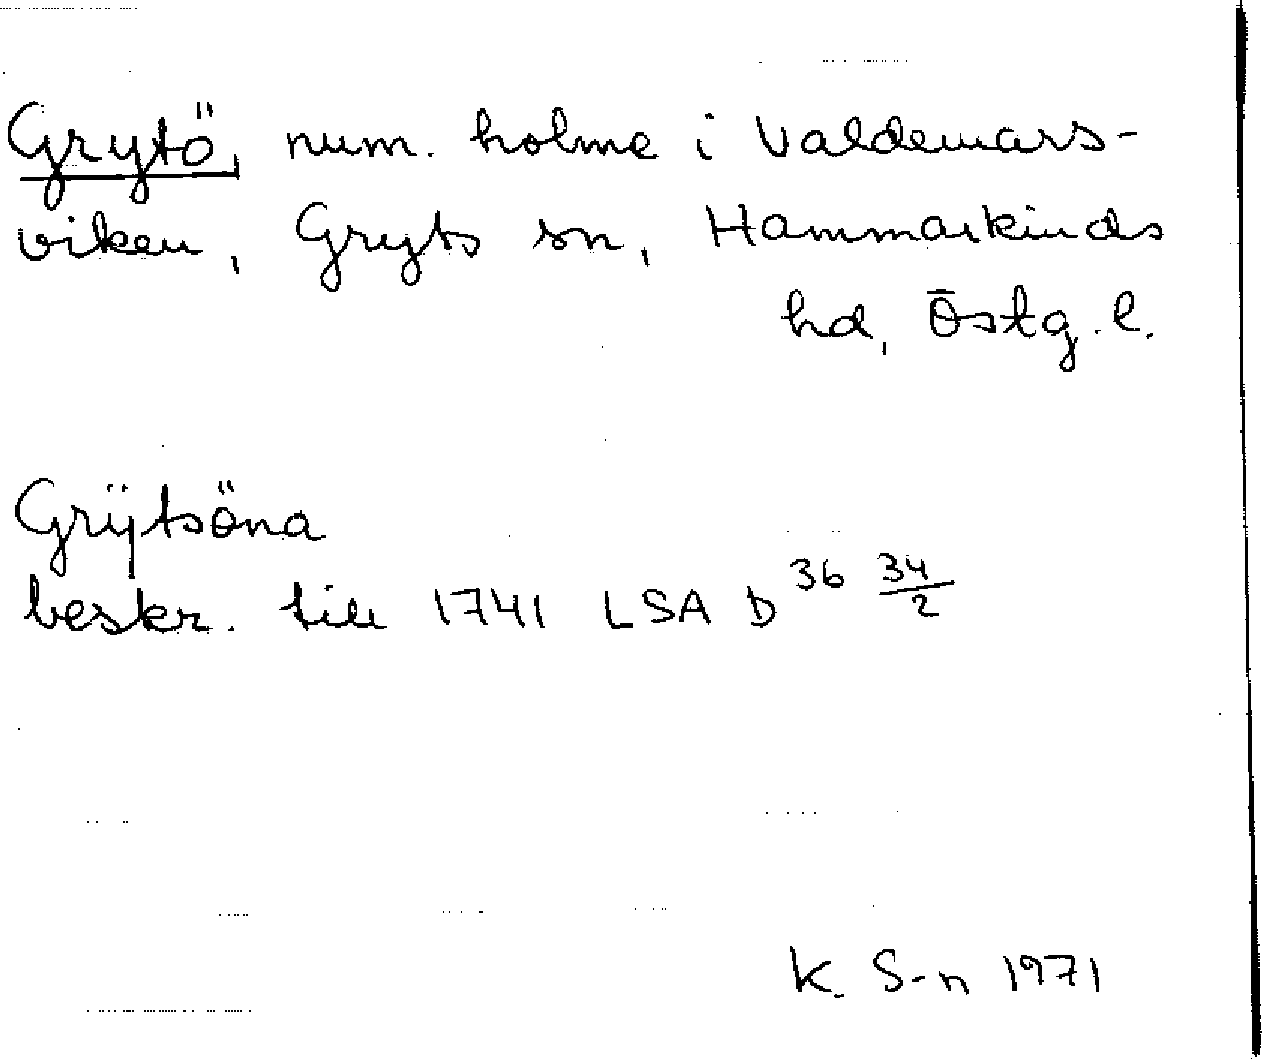 Grytö, num. holme i Valdemars-
viken, Gryts sn, Hammarkinds
hd, Östg. l.
Grÿtsöna
beskr. till 1741 LSA D 36 34/2
K. S-n 1971